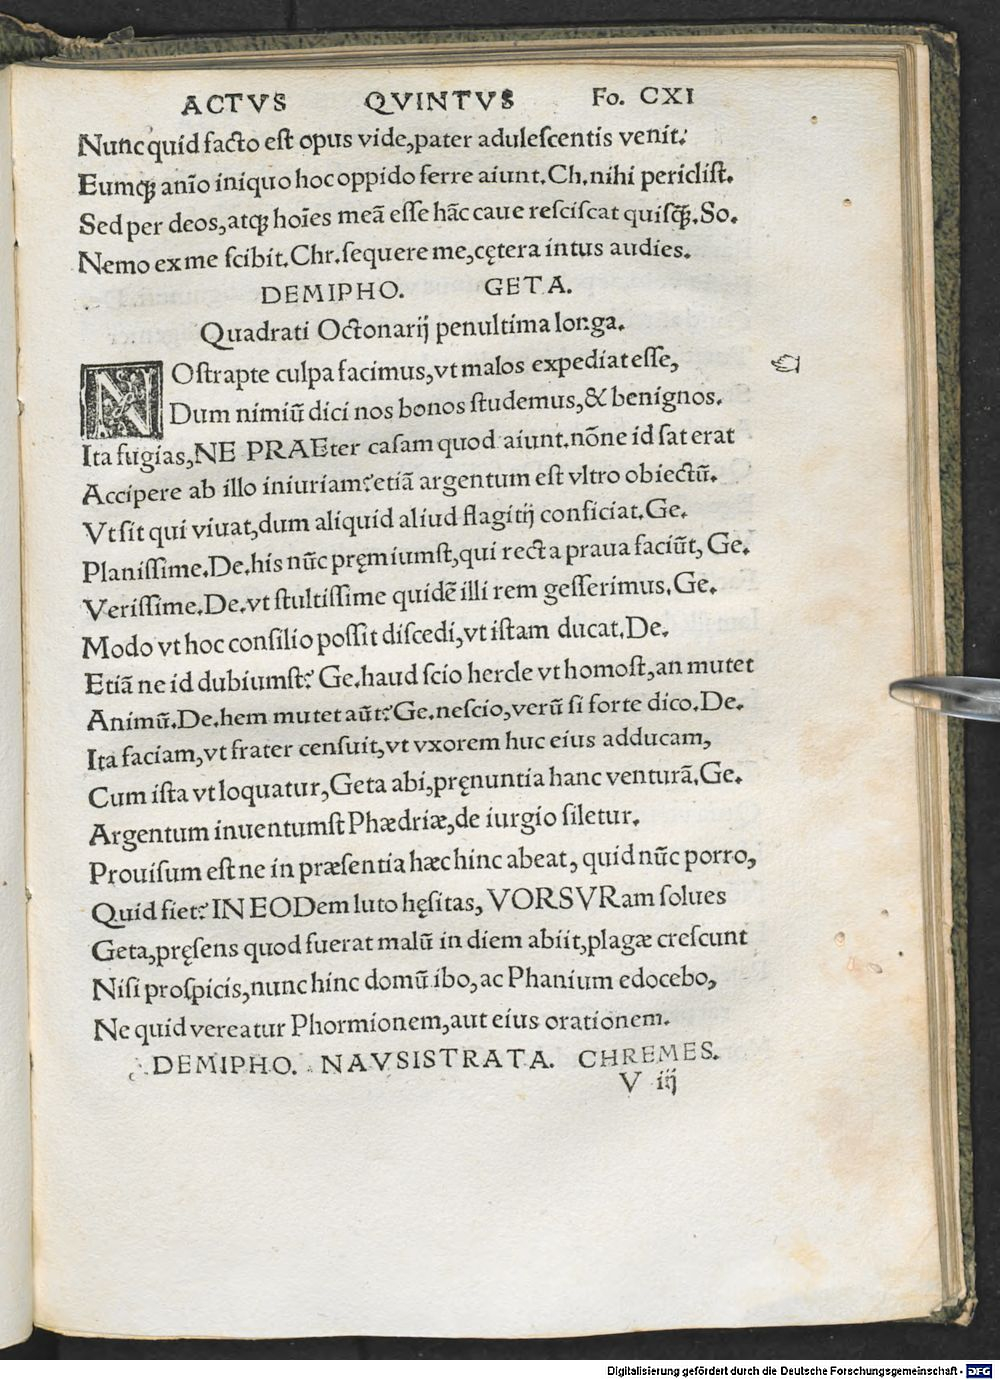 ACTVS QVINTVS Fo. CXI
Nunc quid facto est opus vide, pater adulescentis venit:
Eumqꝫ anīo iniquo hoc oppido ferre aiunt. Ch. nihi periclist.
Sed per deos, atqꝫ hoīes meā esse hāc caue resciscat quisq̄ꝫ. So.
Nemo ex me scibit. Chr. sequere me, cętera intus audies.
DEMIPHO. GETA.
Quadrati Octonarij penultima longa.
NOstrapte culpa facimus, vt malos expediat esse,
Dum nimiū dici nos bonos studemus, & benignos.
Ita fugias, NE PRAEter casam quod aiunt. nōne id sat erat
Accipere ab illo iniuriam? etiā argentum est vltro obiectū.
Vt sit qui viuat, dum aliquid aliud flagitij conficiat. Ge.
Planissime. De. his nūc pręmiumst, qui recta praua faciūt, Ge.
Verissime. De. vt stultissime quidē illi rem gesserimus. Ge.
Modo vt hoc consilio possit discedi, vt istam ducat. De.
Etiā ne id dubiumst? Ge. haud scio hercle vt homost, an mutet
Animū. De. hem mutet aūt? Ge. nescio, verū si forte dico. De.
Ita faciam, vt frater censuit, vt vxorem huc eius adducam,
Cum ista vt loquatur, Geta abi, pręnuntia hanc venturā. Ge.
Argentum inuentumst Phædriæ, de iurgio siletur.
Prouisum est ne in præsentia hæc hinc abeat, quid nūc porro,
Quid fiet? IN EODem luto hęsitas, VORSVRam solues
Geta, pręsens quod fuerat malū in diem abiit, plagæ crescunt
Nisi prospicis, nunc hinc domū ibo, ac Phanium edocebo,
Ne quid vereatur Phormionem, aut eius orationem.
DEMIPHO. NAVSISTRATA. CHREMES.
V iij
Digitalisierung gefördert durch die Deutsche Forschungsgemeinschaft - DFG